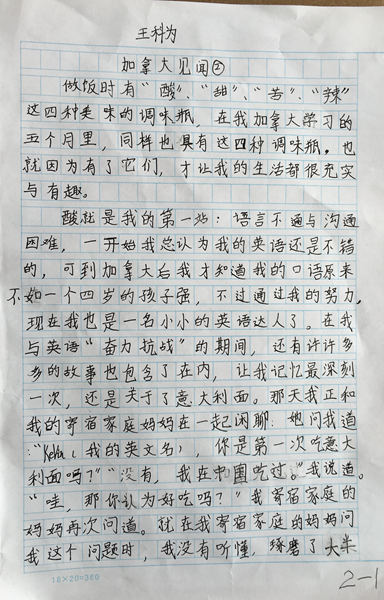 王科为
加拿大见闻②
做饭时有“酸”、“甜”、“苦”、“辣”
这四种美味的调味瓶，在我加拿大学习的
五个月里，同样也具有这四种调味瓶。也
就因为有了它们，才让我的生活都很充实
与有趣。
酸就是我的第一站：语言不通与沟通
困难，一开始我总认为我的英语还是不错
的，可到加拿大后我才知道我的口语原来
不如一个四岁的孩子强，不过通过我的努力，
现在我也是一名小小的英语达人了。在我
与英语“奋力抗战”的期间，还有许许多
多的故事也包含了在内，让我记忆最深刻
一次，还是关于了意大利面。那天我正和
我的寄宿家庭妈妈在一起闲聊，她问我道
：“Kevin（我的英文名），你是第一次吃意大
利面吗？”“没有，我在中国吃过。”我说道。
“哇，那你认为好吃吗？”我寄宿家庭的
妈妈再次问道。就在我寄宿家庭的妈妈问
我这个问题时，我没有听懂，琢磨了大半
18×20=360
2-1